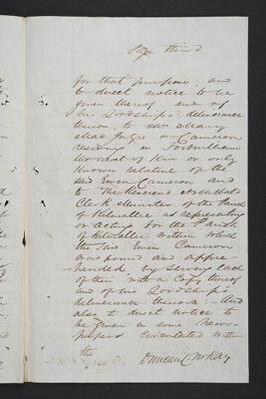 Page third
for that purpose and
to direct notice to be
given thereof and of
his Lordship's deliverance
thereon, to Mrs Mary
or Cameron
residing in Fortwilliam
the next of Kin or only
known relative of the
said Ewen Cameron and
to The Reverend Archibald
Clerk Minister of the Parish
of Kilmallie as representing
or acting for the Parish
of Kilmallie within which
the said Ewen Cameron
was found and appre-
hended by serving each
of them with a Copy thereof
and of his Lordship's
deliverance thereon: And
also to direct notice to
be given in some News-
papers circulated within
the
Duncan McKay